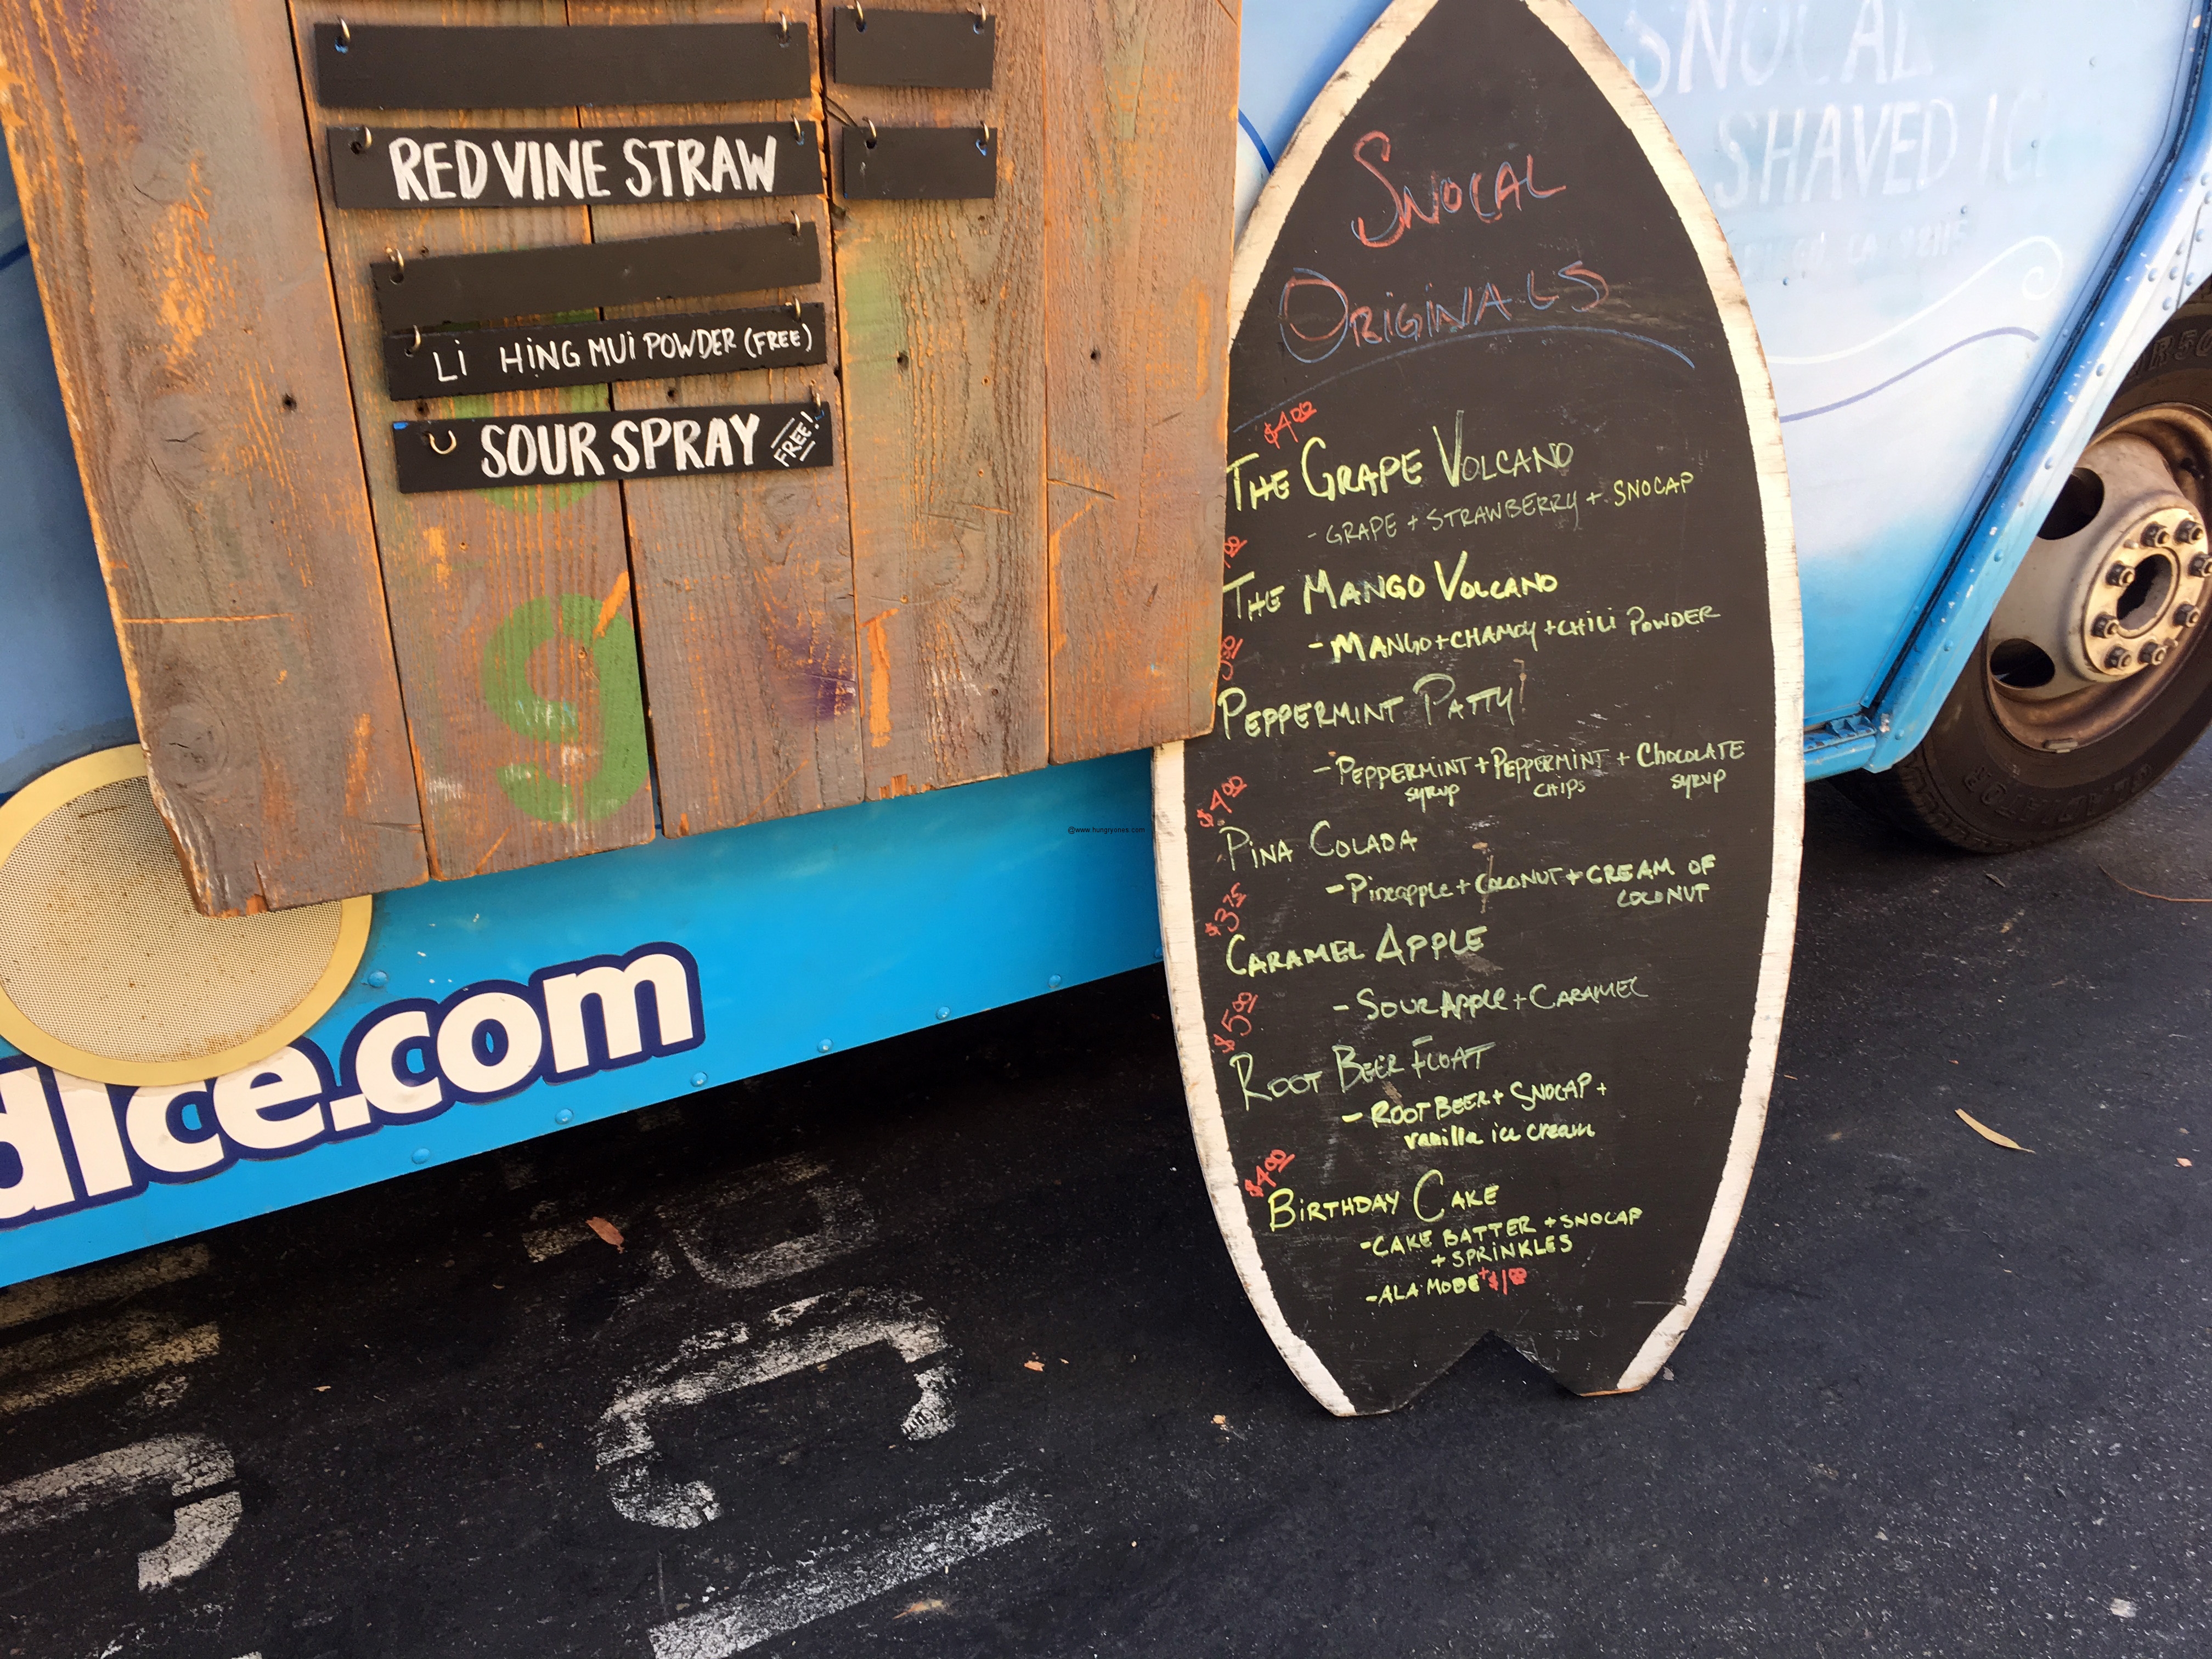 RED VINE STRAW
LI HING MUI POWDER (FREE)
SOUR SPRAY FREE!
dIce.com
@www.hungryones.com
SNOCAL
SHAVED ICE
SNOCAL
ORIGINALS
$4.00
THE GRAPE VOLCANO
- GRAPE + STRAWBERRY + SNOCAP
THE MANGO VOLCANO
- MANGO + CHAMOY + CHILI POWDER
PEPPERMINT PATTY
- PEPPERMINT + PEPPERMINT + CHOCOLATE
SYRUP CHIPS SYRUP
$4.00
PINA COLADA
- Pineapple + COCONUT + CREAM OF
COCONUT
$3.75
CARAMEL APPLE
- SOUR APPLE + CARAMEL
$5.00
ROOT BEER FLOAT
- ROOT BEER + SNOCAP +
vanilla ice cream
$4.00
BIRTHDAY CAKE
- CAKE BATTER + SNOCAP
+ SPRINKLES
- ALA MODE + $1.00